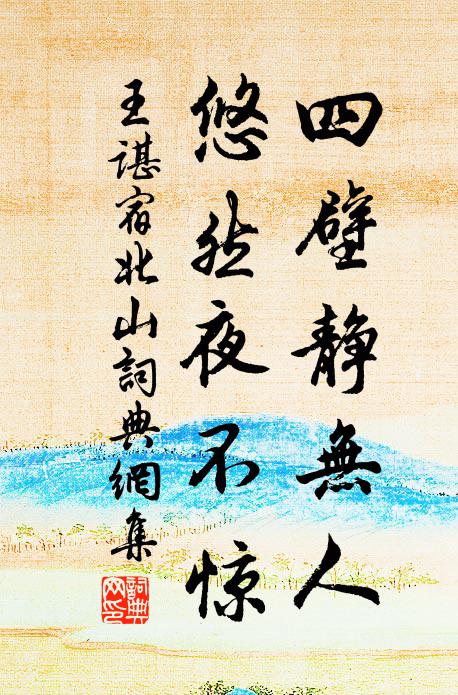 四壁静無人
悠然夜不惊
王諶宿北山詞典網集